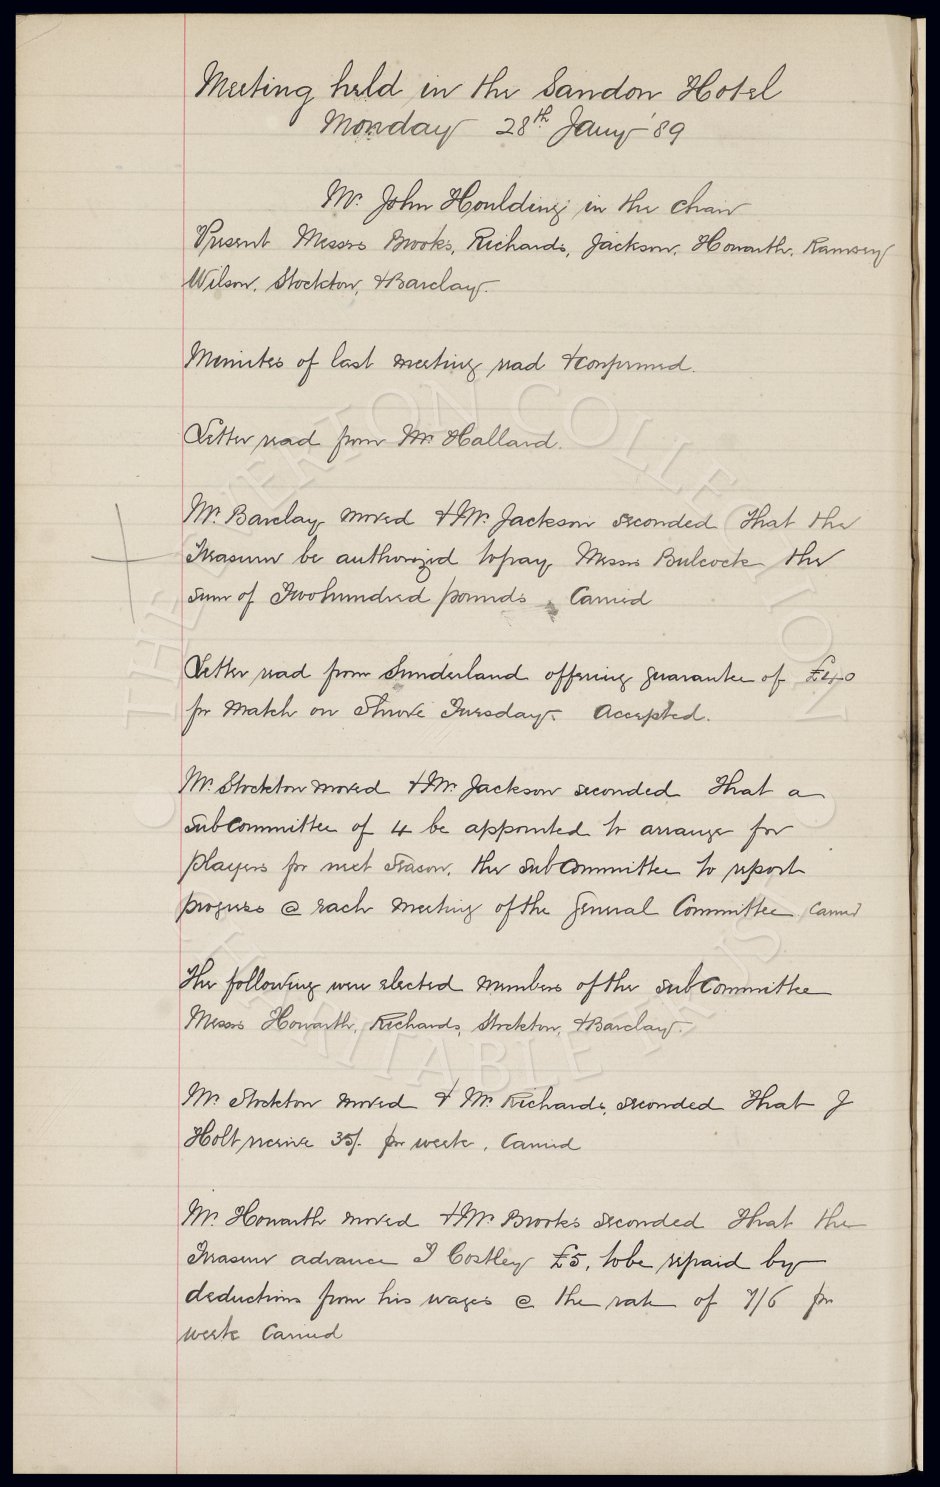 Meeting held in the Sandon Hotel
Monday 28th Jany '89
Mr. John Houlding in the chair
Present Messrs Brooks, Richards, Jackson, Howarth, Ramsey
Wilson, Stockton, & Barclay.
Minutes of last meeting read & confirmed.
Letter read from Mr Halland.
Mr. Barclay moved & Mr. Jackson seconded that the
Treasurer be authorized to pay Messrs Bulcock the
sum of Two hundred pounds. Carried
Letter read from Sunderland offering guarantee of £40
for match on Shrove Tuesday. Accepted.
Mr. Stockton moved & Mr. Jackson seconded that a
subCommittee of 4 be appointed to arrange for
players for next Season, the subCommittee to report
progress @ each meeting of the General Committee Carried
The following were elected members of the subCommittee
Messrs Howarth, Richards, Stockton, & Barclay.
Mr. Stockton moved & Mr. Richards, seconded that J
Holt receive 35/- per week. Carried
Mr. Howarth moved & Mr. Brooks seconded that the
Treasurer advance T Costley £5, to be repaid by
deductions from his wages @ the rate of 7/6 per
week Carried
THE EVERTON COLLECTION
CHARITABLE TRUST